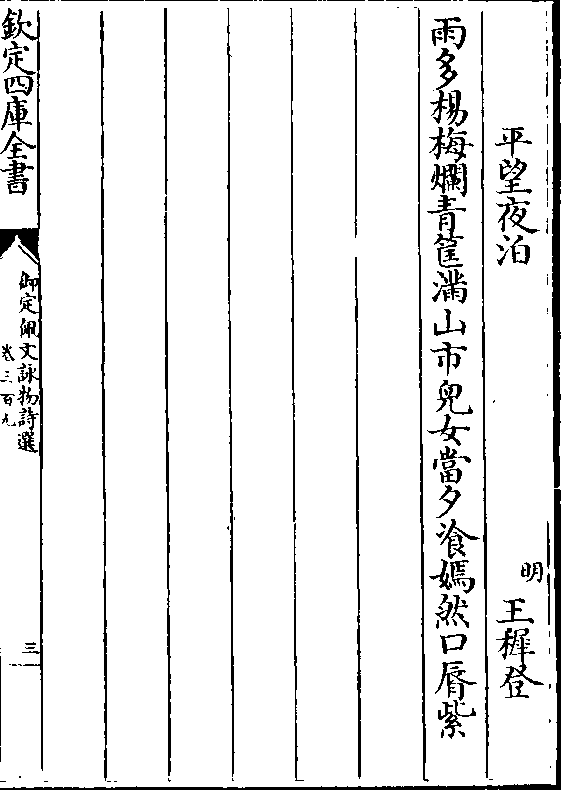 平望夜泊 明 王穉登
雨多楊梅爛青筐滿山市兒女當夕飡嫣然口脣紫
欽定四庫全書
御定佩文詠物詩選
卷三百九
三